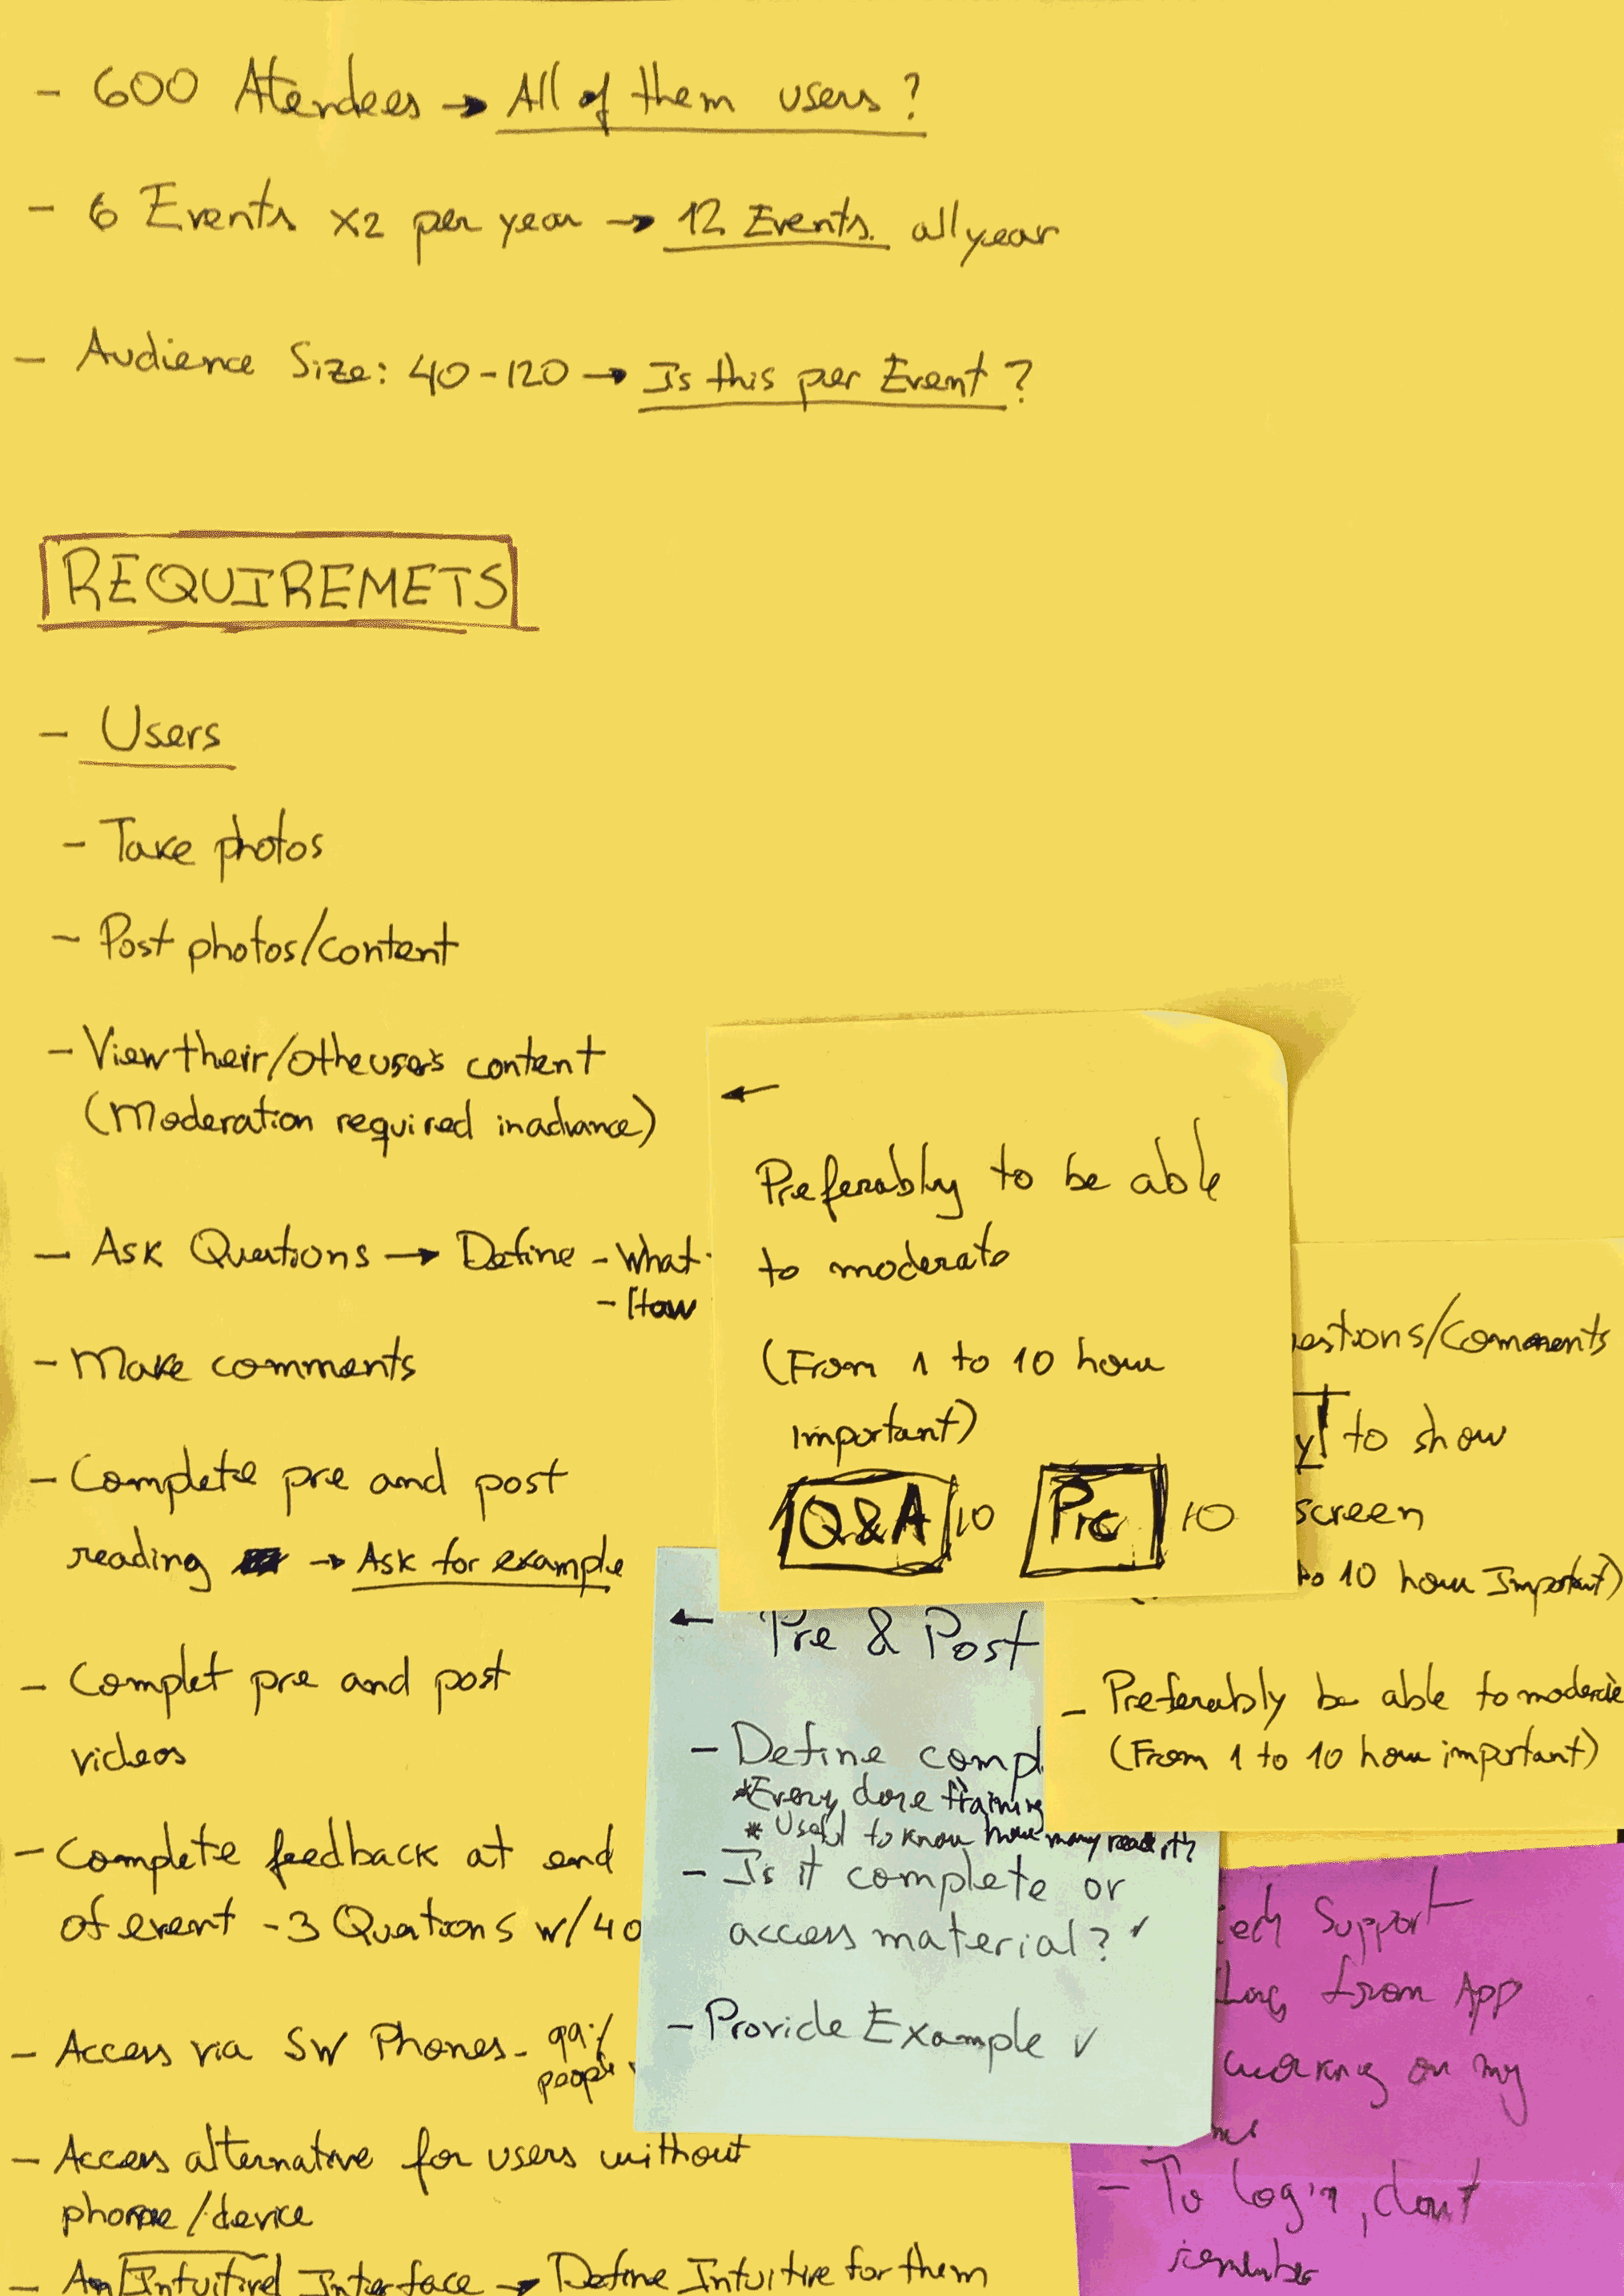 - 600 Atendees → All of them users?
- 6 Events x2 per year → 12 Events. all year
- Audience Size: 40-120 → Is this per Event?
REQUIREMETS
- Users
- Take photos
- Post photos/content
- View their/otheuser's content
(Moderation required inadvance)
- Ask Quetions → Define - What
- How
- Make comments
- Complete pre and post
reading → Ask for example
- Complet pre and post
videos
- Complete feedback at end
of event - 3 Quetions w/40
- Access via SW Phones - 99%
people
- Access alternative for users without
phone/device
- An Intuitive Interface → Define Intuitive for them
←
Preferably to be able
to moderate
(From 1 to 10 how
important)
Q&A 10 Pre 10
estions/Comments
y! to show
screen
to 10 how Important)
- Preferably be able to moderate
(From 1 to 10 how important)
← Pre & Post
- Define comp
*Every done training
* Useful to know how many read it?
- Is it complete or
access material? ✓
- Provide Example ✓
ech Support
from App
working on my
- To login, dont
remember